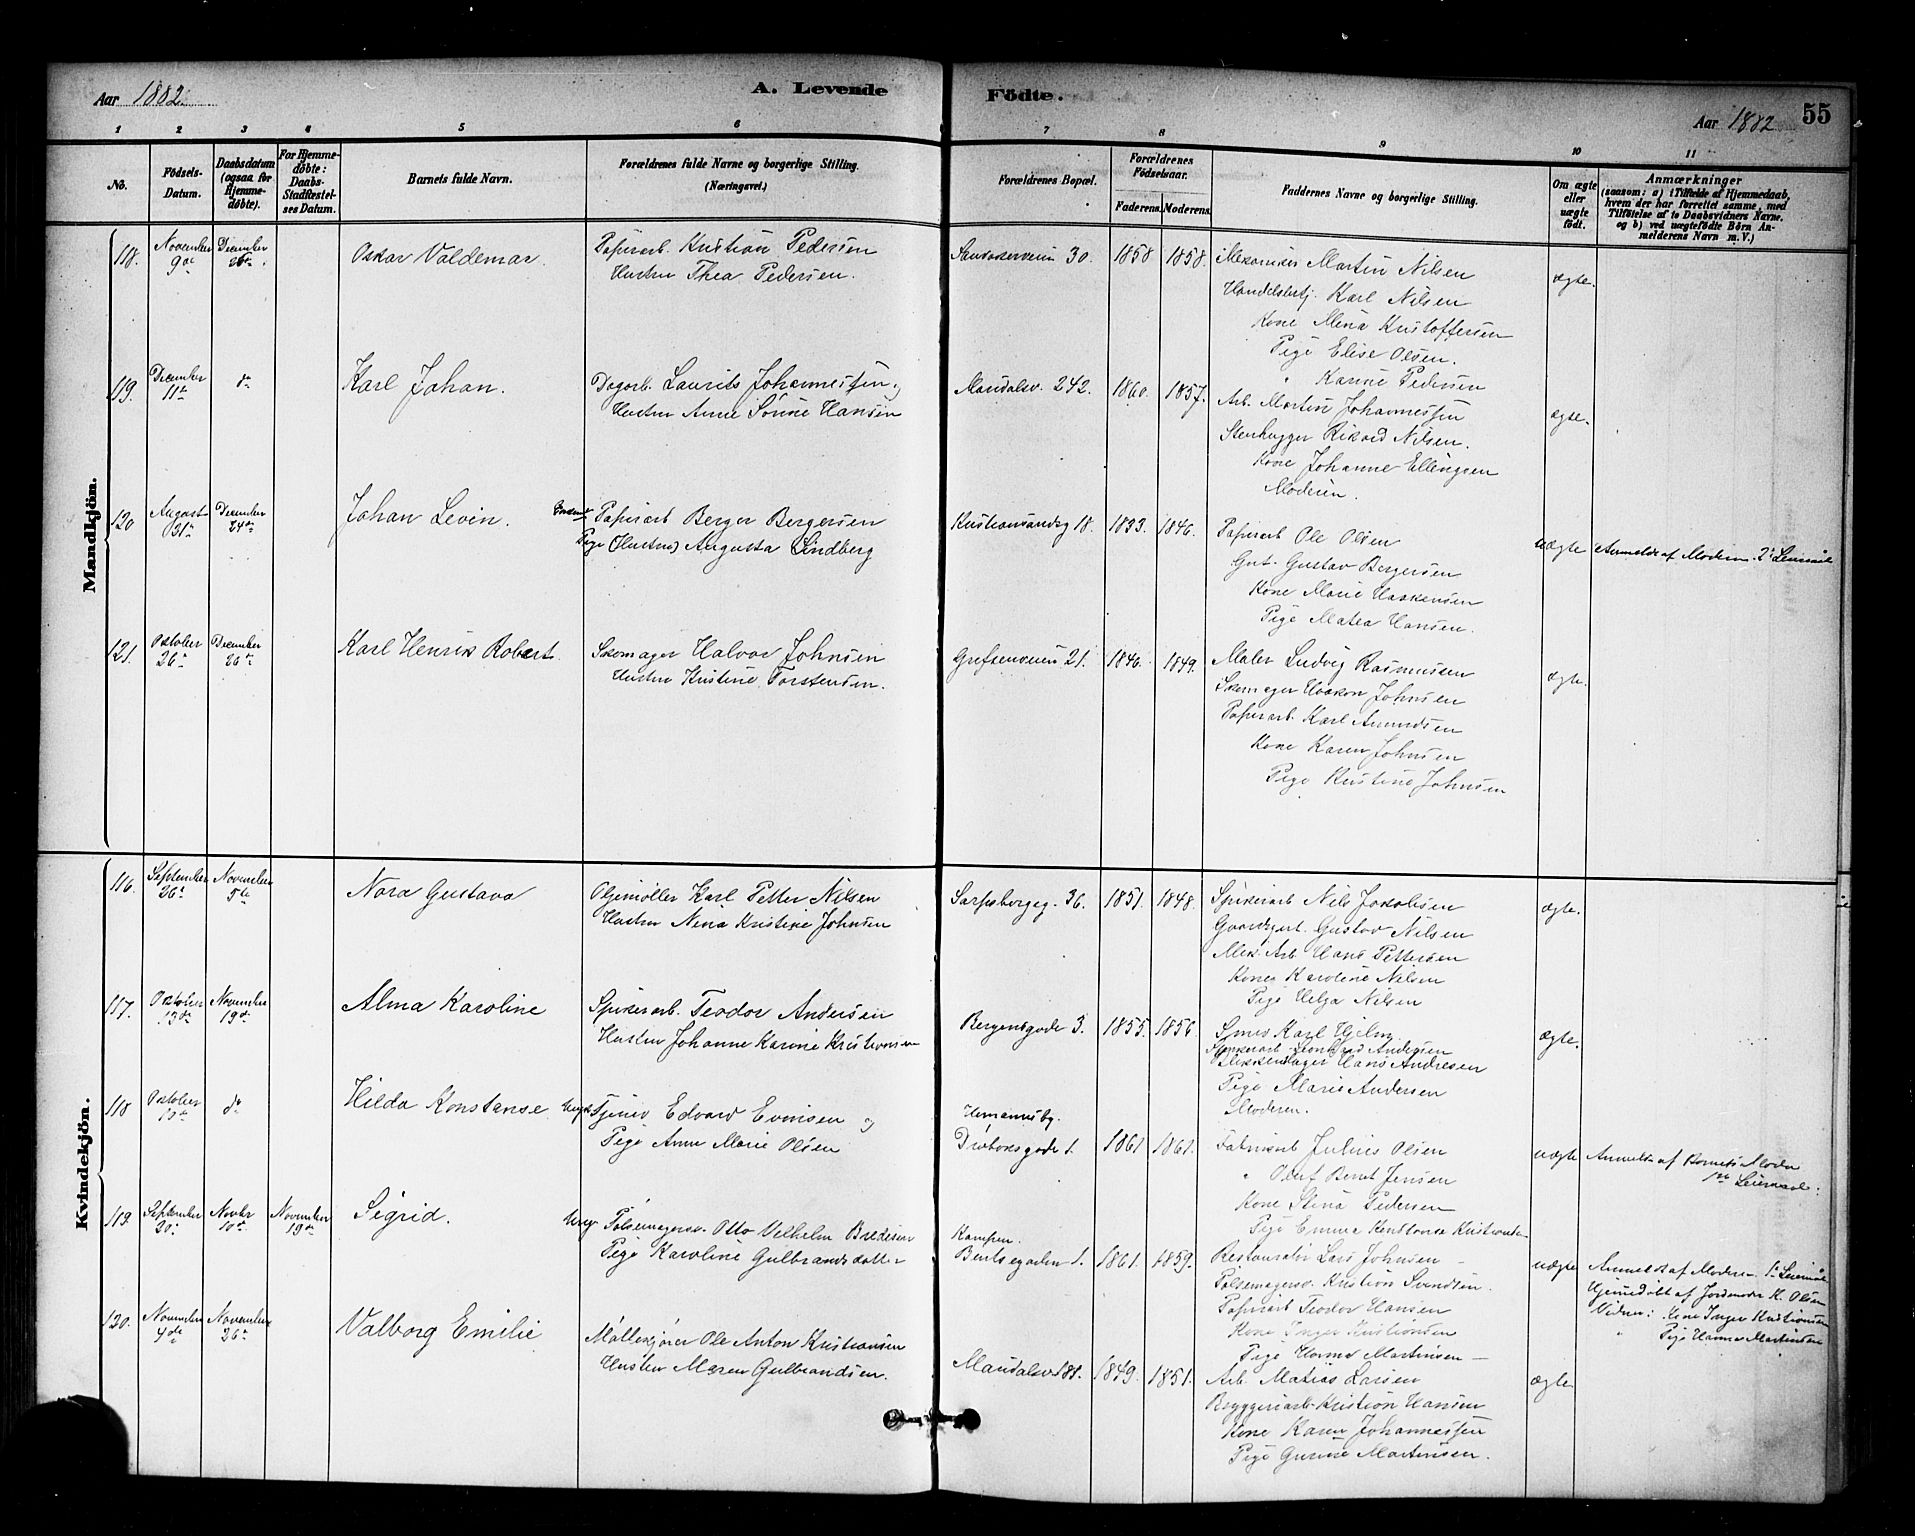 Aar 1882. A. Levende Födte. Aar 1882 55
1 2 3 4 5 6 7 8 9 10 11
No.
Födsels-Datum.
Daabsdatum (ogsaa for Hjemme-döbte).
For Hjemme-döbte: Daabs-Stadfæstel-ses Datum.
Barnets fulde Navn.
Forældrenes fulde Navne og borgerlige Stilling. (Næringsvei.)
Forældrenes Bopæl.
Forældrenes Födselsaar.
Faderens. Moderens.
Faddernes Navne og borgerlige Stilling.
Om ægte eller uægte födt.
Anmærkninger
(saasom: a) i Tilfælde af Hjemmedaab,
hvem der har forrettet samme, med
Tilföielse af to Daabsvidners Navne.
og b) ved uægtefödte Börn An-
melderens Navn m. V.)
Mandkjön.
118. November 9de December 26de Oskar Valdemar. Papirarb. Kristian Pedersen Sandakerveien 30. 1858 1858. Mekaniker Martin Nilsen ægte.
Hustru Thea Pedersen. Handelsbetj. Karl Nilsen
Kone Mina Kristoffersen
Pige Elise Olsen.
" Karine Pedersen
119. December 11te do Karl Johan. Dagarb. Laurits Johannessen og Maridalsv. 242. 1860. 1857. Arb. Martin Johannessen ægte.
Hustru Anne Sörine Hansen Stenhugger Rikard Nilsen.
Kone Johanne Ellingsen
Moderen.
120 August 31te December 24de Johan Levin. Papirarb Berger Bergersen Kristiansandsg 18. 1833. 1846. Papirarb Ole Olsen uægte Anmeldt af Moderen. 2det Leiermaal
Pige (Hustru) Augusta Lindberg Gut. Gustav Bergersen
Kone Marie Haakensen
Pige Matea Hansen.
121. Oktober 26de December 26de Karl Henrik Robert Skomager Halvor Johnsen Grefsenveien 21. 1846. 1849. Maler Ludvig Rasmussen ægte.
Hustru Kristine Torstensen. Skomager Haakon Johnsen
Papirarb. Karl Amundsen
Kone Karen Johnsen
Pige Kristine Johnsen
Kvindekjön.
116. September 26de November 5te Nora Gustava Oljemöller Karl Petter Nilsen Sarpsborgg. 36. 1851. 1848. Spikerarb Nils Jakobsen ægte.
Hustru Nina Kristine Johnsen Gaardsgut. Gustav Nilsen
Mek. Arb Hans Pettersen
Kone Karoline Nilsen
Pige Helga Nilsen
117. Oktober 13de November 19de Alma Karoline Spikerarb. Teodor Andersen Bergensgade 3. 1855. 1856. Smed Karl Hjelm ægte.
Hustru Johanne Karine Kristiansen Spikerarb. Leonhard Andersen
Blikkenslager Hans Andresen
Pige Marie Andersen
Moderen.
118 Oktober do Hilda Konstanse Ungk. Tjener Edvard Evensen og Hermannsbg. 1861 1861. Fabrikarb Julius Olsen uægte Anmeldt af Barnets Moder
Pige Anne Marie Olsen Dröbaksgade 1. " Oluf Bernt Jensen 1ste Leiermaal.
Kone Stina Pedersen
Pige Emma Konstanse Kristiansen
119. September 20de Novbr 10de November 19de Sigrid. Ungk. Pölsemagersv. Otto Vilhelm Bredesen Kampen. 1861. 1859. Restauratör Lars Johnsen uægte Anmeldt af Moderen 1ste Leiermaal
Pige Karoline Gulbrandsdatter Bentsegaden 1. Pölsemagersv. Kristian Svendsen Hjemmedöbt af Jordemoder K. Olsen
Papirarb Teodor Hansen Vidner: Kone Inger Kristiansen
Kone Inger Kristiansen " Pige Hanna Martinsen
Pige Hanna Martinsen
120. November 4de November 26de Valborg Emilie Möllekjörer Ole Anton Kristiansen Maridalsv 181. 1849. 1851. Arb. Matias Larsen ægte
Hustru Maren Gulbrandsen. Bryggeriarb Kristian Hansen
Kone Karen Johannessen
Pige Gurine Martinsen.